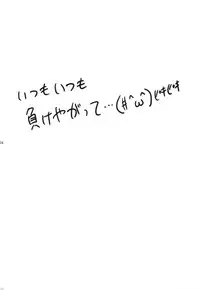 いつもいつも
負けやがって…(#^ω^)ビキビキ